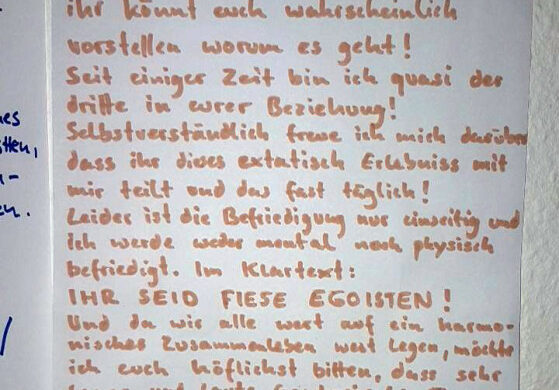 ihr könnt euch wahrscheinlich
vorstellen worum es geht!
Seit einiger Zeit bin ich quasi der
dritte in eurer Beziehung!
Selbstverständlich freue ich mich darüber
dass ihr dieses extatisch Erlebniss mit
mir teilt und das fast täglich!
Leider ist die Befriedigung nur einseitig und
ich werde weder mental noch physisch
befriedigt. Im Klartext:
IHR SEID FIESE EGOISTEN!
Und da wir alle wert auf ein harmo-
nisches Zusammenleben wert legen, möchte
ich euch höflichst bitten, dass sehr